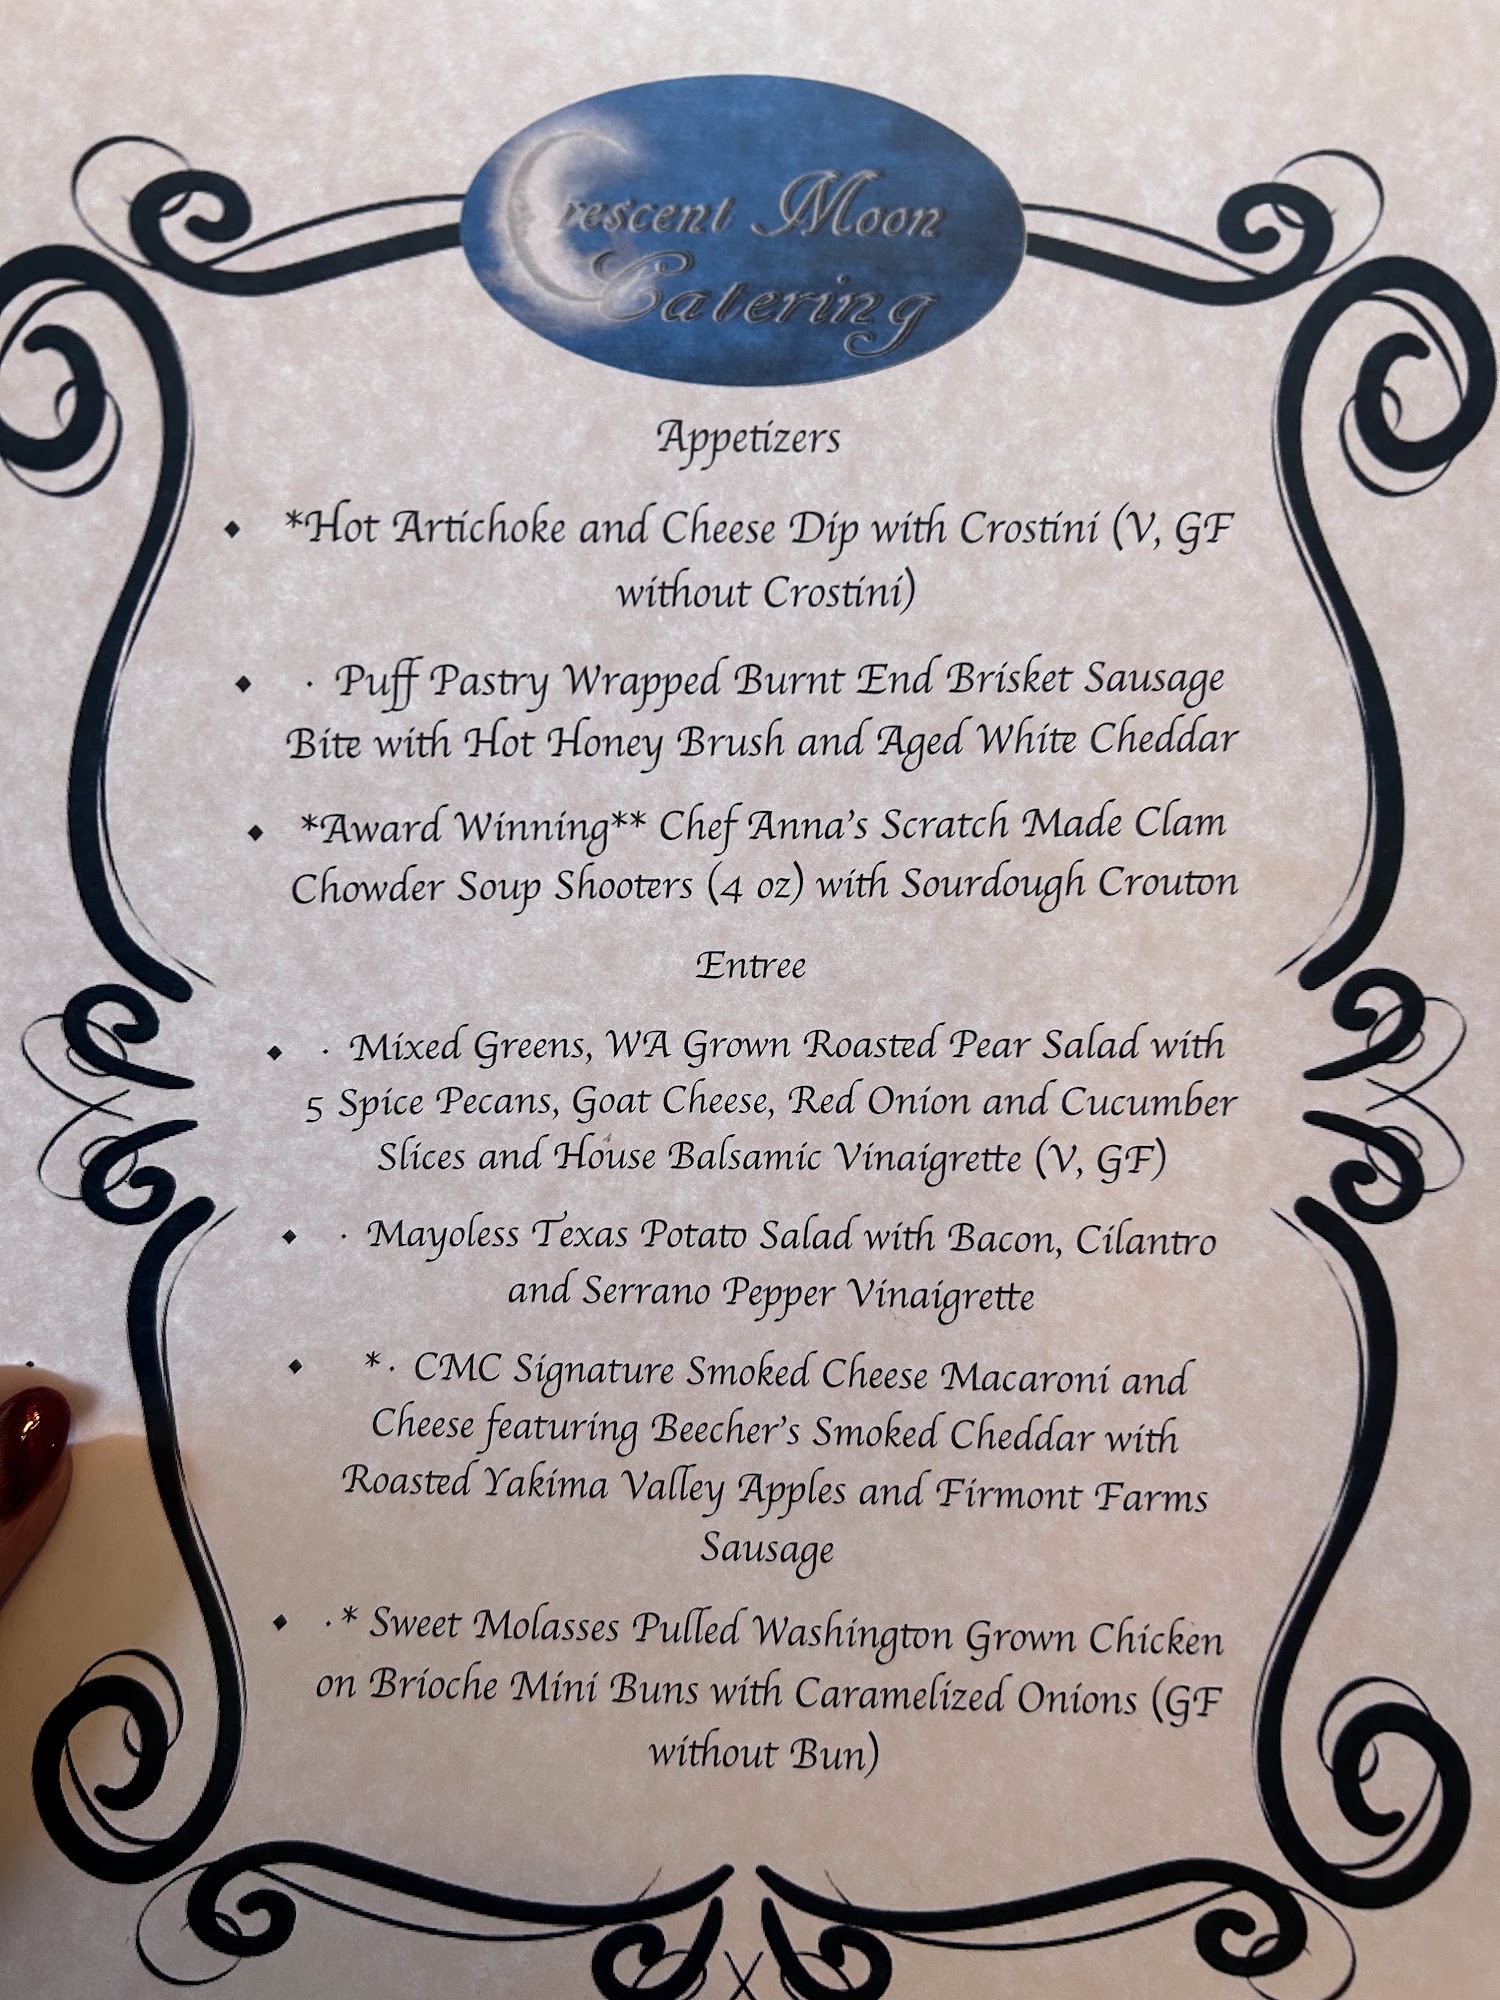 Crescent Moon
Catering
Appetizers
◆ *Hot Artichoke and Cheese Dip with Crostini (V, GF
without Crostini)
◆ · Puff Pastry Wrapped Burnt End Brisket Sausage
Bite with Hot Honey Brush and Aged White Cheddar
◆ *Award Winning** Chef Anna's Scratch Made Clam
Chowder Soup Shooters (4 oz) with Sourdough Crouton
Entree
◆ · Mixed Greens, WA Grown Roasted Pear Salad with
5 Spice Pecans, Goat Cheese, Red Onion and Cucumber
Slices and House Balsamic Vinaigrette (V, GF)
◆ · Mayoless Texas Potato Salad with Bacon, Cilantro
and Serrano Pepper Vinaigrette
◆ *· CMC Signature Smoked Cheese Macaroni and
Cheese featuring Beecher's Smoked Cheddar with
Roasted Yakima Valley Apples and Firmont Farms
Sausage
◆ ·* Sweet Molasses Pulled Washington Grown Chicken
on Brioche Mini Buns with Caramelized Onions (GF
without Bun)